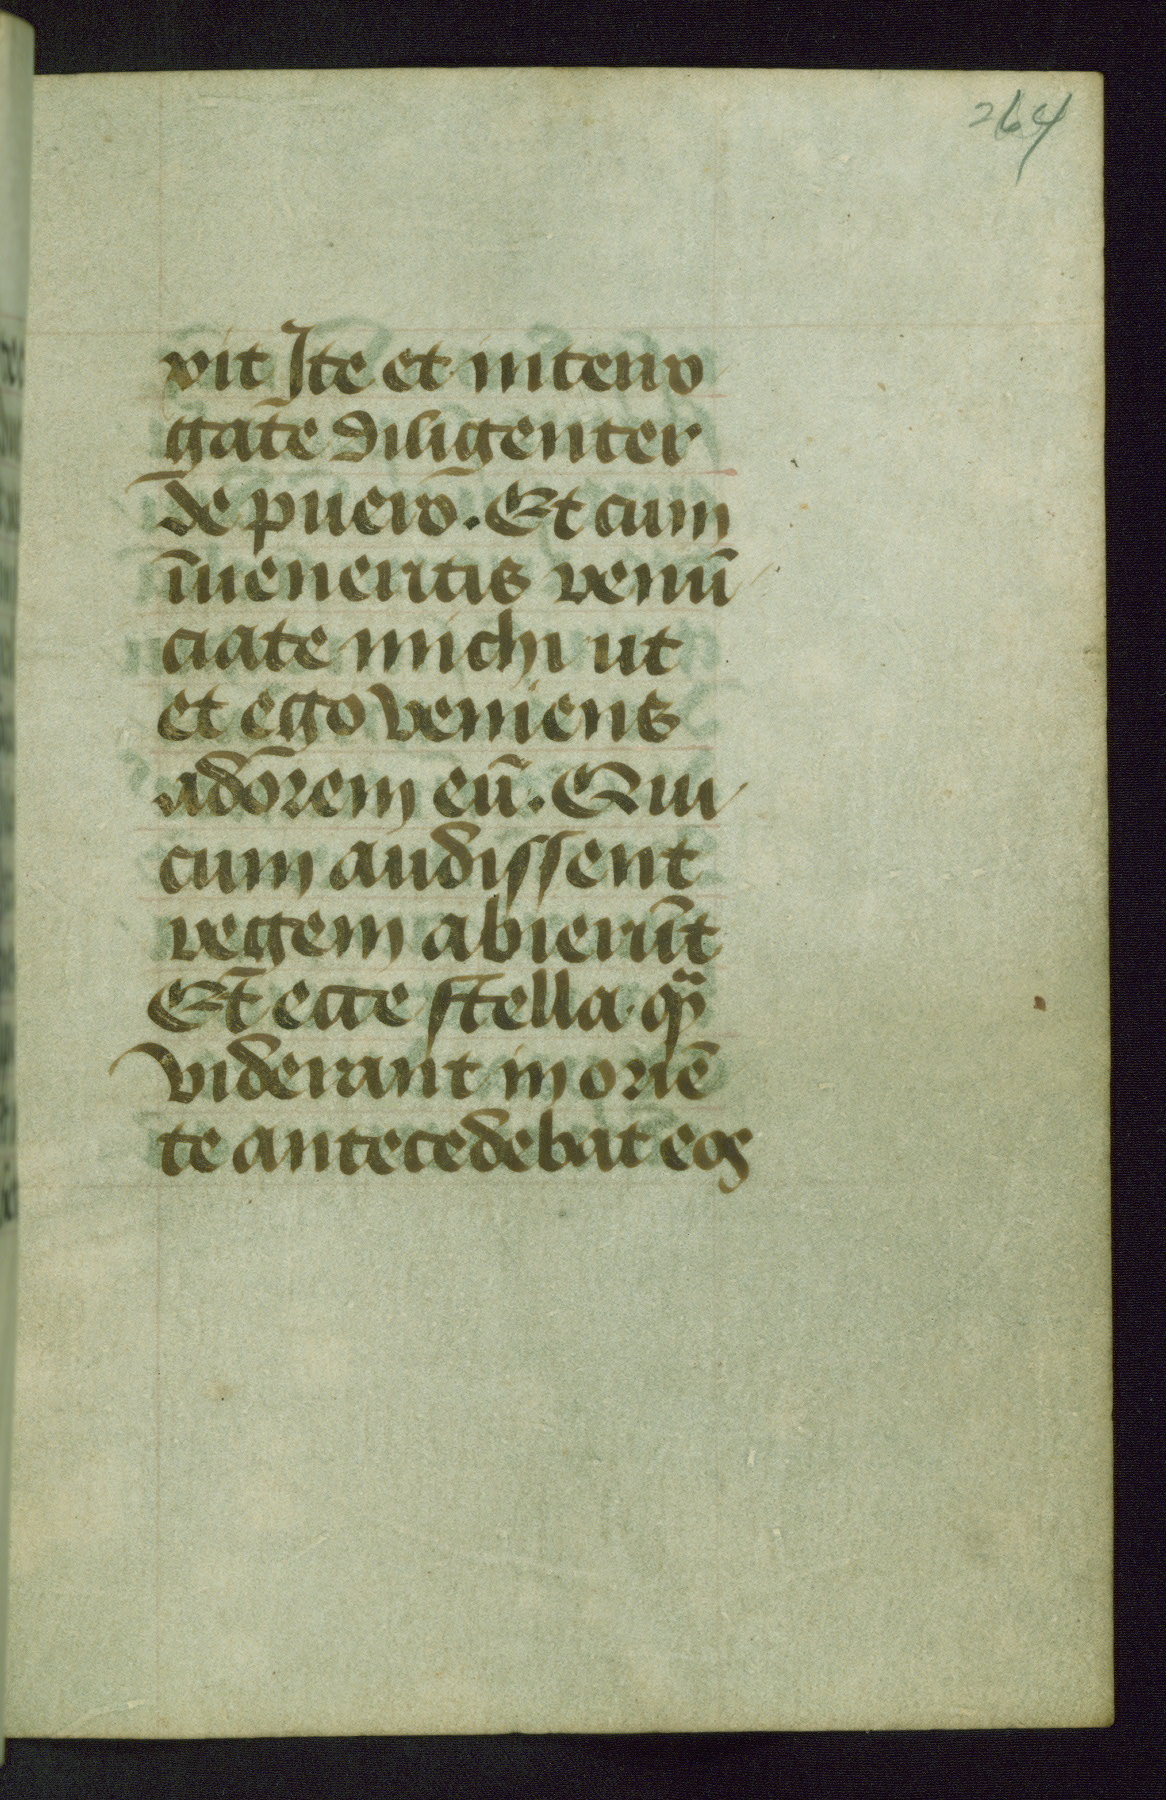 264
xit Ite et interro
gate diligenter
de puero. Et cum
īueneritis renū
ciate michi ut
et ego veniens
adorem eū. Qui
cum audissent
regem abierūt
Et ecce stella qͣ
viderant in oriē
te antecedebat eos